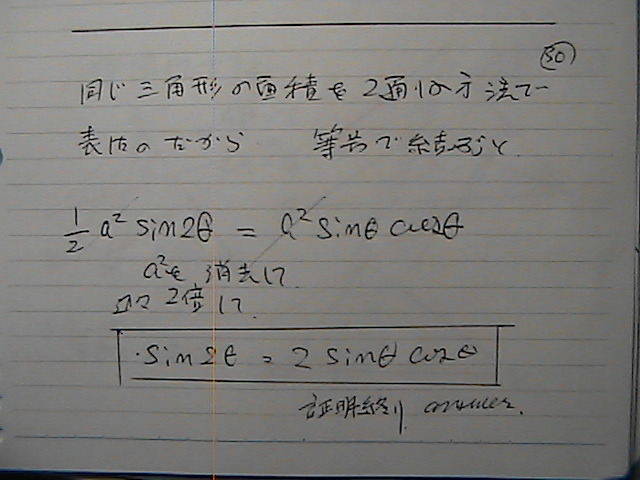 (30)
同じ三角形の面積を2通りの方法で
表したのだから 等号で結ぶと
1/2 a² sin2θ = a² sinθ cosθ
a²を消去して
2倍して
sin2θ = 2 sinθ cosθ
証明終り answer.